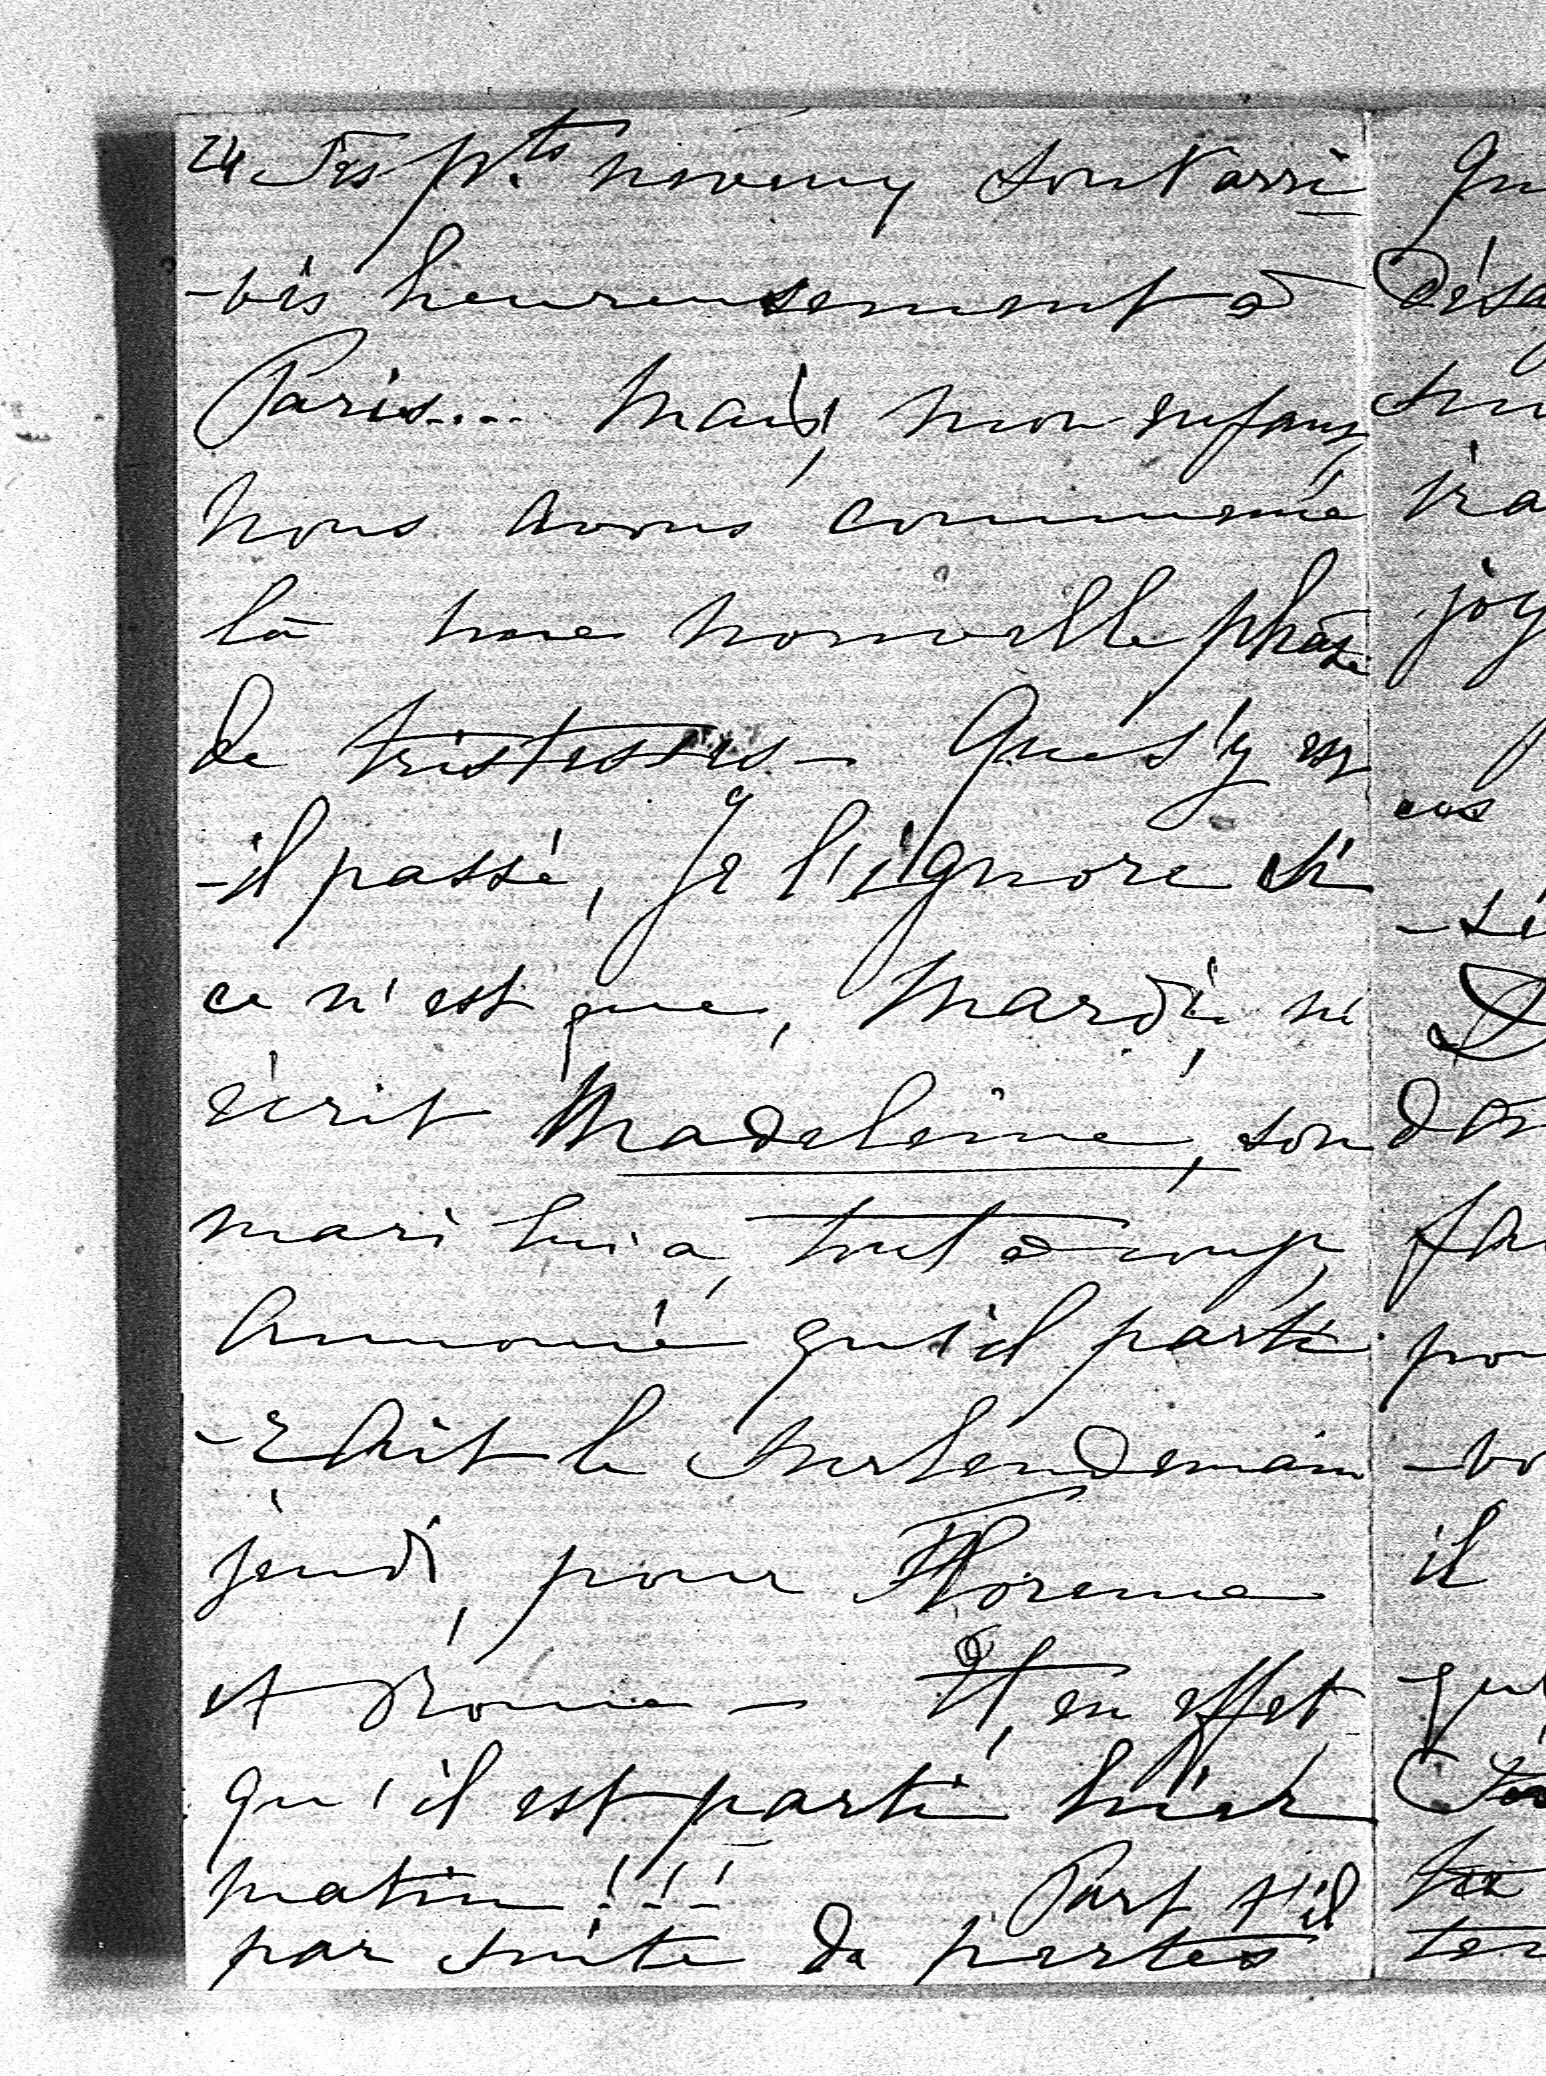 24 Tes pts neveux sont arri
-vés heureusement à
Paris... Mais, mon enfant,
nous avons commencé
là une nouvelle phase
de tristesses – Que s'y est
-il passé, je l'ignore si
ce n'est que, Mardi, m'a
écrit Madeleine, son
mari lui a, tout à coup,
annoncé qu'il parti
-rait le surlendemain
jeudi, pour Florence
et Rome – Et, en effet,
qu'il est parti hier
matin!!! Part t'il
par suite de pertes
Qu
désa
ira
joy
ces
il